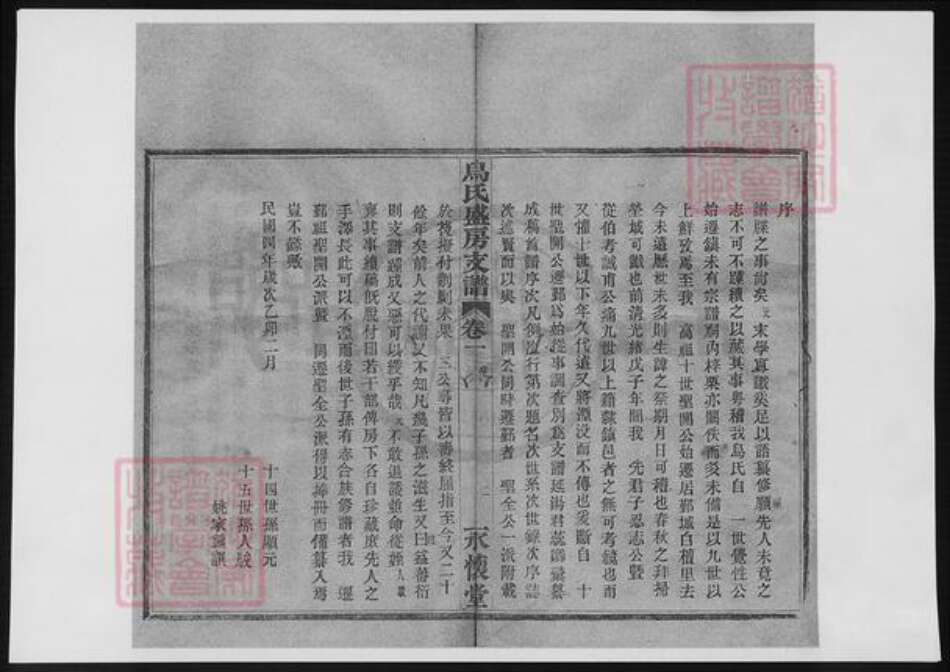 序
譜牒之事尚矣 末學寡識奚足以語纂修願先人未竟之
志不可不踵續之以蕆其事粤稽我烏氏自 一世覺性公
始遷鎮未有宗譜祠內桳栗亦闕佚而多未備是以九世以
上鮮攷焉至我 高祖十世聖開公始遷居鄞城白檀里去
今未遠歷世未多則生諱之祭期月日可稽也春秋之拜掃
塋域可獻也前清光緒戊子年間我 先君子忍志公暨
從伯耆誠甫公痛九世以上籍隸鎮邑者之無可考鏡也而
又懼十世以下年久代遠又將湮沒而不傳也爰斷自 十
世聖開公遷鄞爲始從事調查別爲支譜延湯君蕊卿彙纂
成稿首譜序次凡例次行第次題名次世系次世錄次序誌
次述賢而以與 聖開公同時遷鄞者 聖全公一派附載
於後擬付剞劂未果 三公尋皆以壽終屈指至今又二十
餘年矣前人之代謝又不知凡幾子孫之滋生又日益蕃衍
則支譜踵成又惡可以緩乎哉 不敢追議並命從姪人駿
襄其事續稿旣脫付印若干部俾房下各自珍藏庶先人之
手澤長此可以不湮而後世子孫有志合族修譜者我 遷
鄞祖聖開公派暨 同遷聖全公派得以捧冊而備纂入焉
豈不懿歟
民國四年歲次乙卯二月
十四世孫顯元
十五世孫人駿
姚家鏞譔
烏氏盛房支譜 卷一 序
一
永懷堂